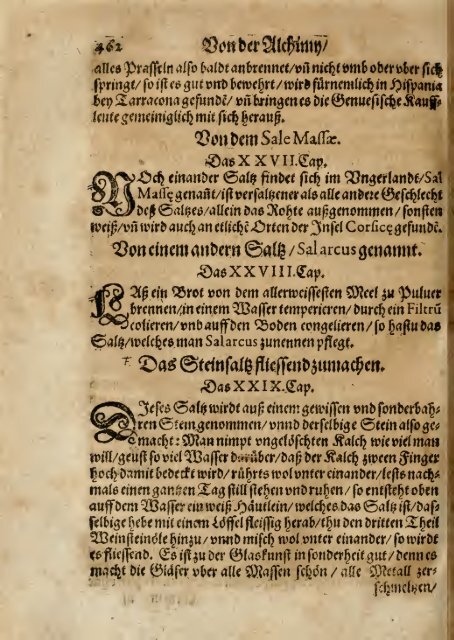 462 Von der Alchimy/
alles Prasseln also baldt anbrennet/vñ nicht vmb oder vber sich
springt/ so ist es gut vnd bewehrt/ wird fürnemlich in Hispania
bey Tarracona gefundē/ vñ bringen es die Genuesische Kauff-
leute gemeiniglich mit sich herauß.
Von dem Sale Massæ.
Das XXVII. Cap.
NOch ein ander Saltz findet sich im Vngerlandt/Sal
Massę genañt/ist versaltzener als alle andere Geschlecht
deß Saltzes/allein das Rohte außgenommen/ sonsten
weiß/vñ wird auch an etlichē Orten der Insel Corsicę gefundē.
Von einem andern Saltz/Salarcus genannt.
Das XXVIII. Cap.
LAß ein Brot von dem allerweissesten Meel zu Puluer
brennen/in einem Wasser temperieren/durch ein Filtrū
colieren/vnd auff den Boden congelieren/ so hastu das
Saltz/welches man Salarcus zunennen pflegt.
Das Steinsaltz fliessend zumachen.
Das XXIX. Cap.
DIeses Saltz wirdt auß einem gewissen vnd sonderbah-
ren Stein genommen/ vnnd derselbige Stein also ge-
macht: Man nimpt vngelöschten Kalch wie viel man
will/geust so viel Wasser darüber/daß der Kalch zween Finger
hoch damit bedeckt wird/rührts wol vnter einander/lests nach-
mals einen gantzen Tag still stehen vnd ruhen/ so entsteht oben
auff dem Wasser ein weiß Häutlein/welches das Saltz ist/das-
selbige hebe mit einem Löffel fleissig herab/thu den dritten Theil
Weinsteinöle hinzu/ vnnd misch wol vnter einander/ so wirdt
es fliessend. Es ist zu der Glaßkunst in sonderheit gut/ denn es
macht die Gläser vber alle Massen schön/ alle Metall zer-
schmeltzen/